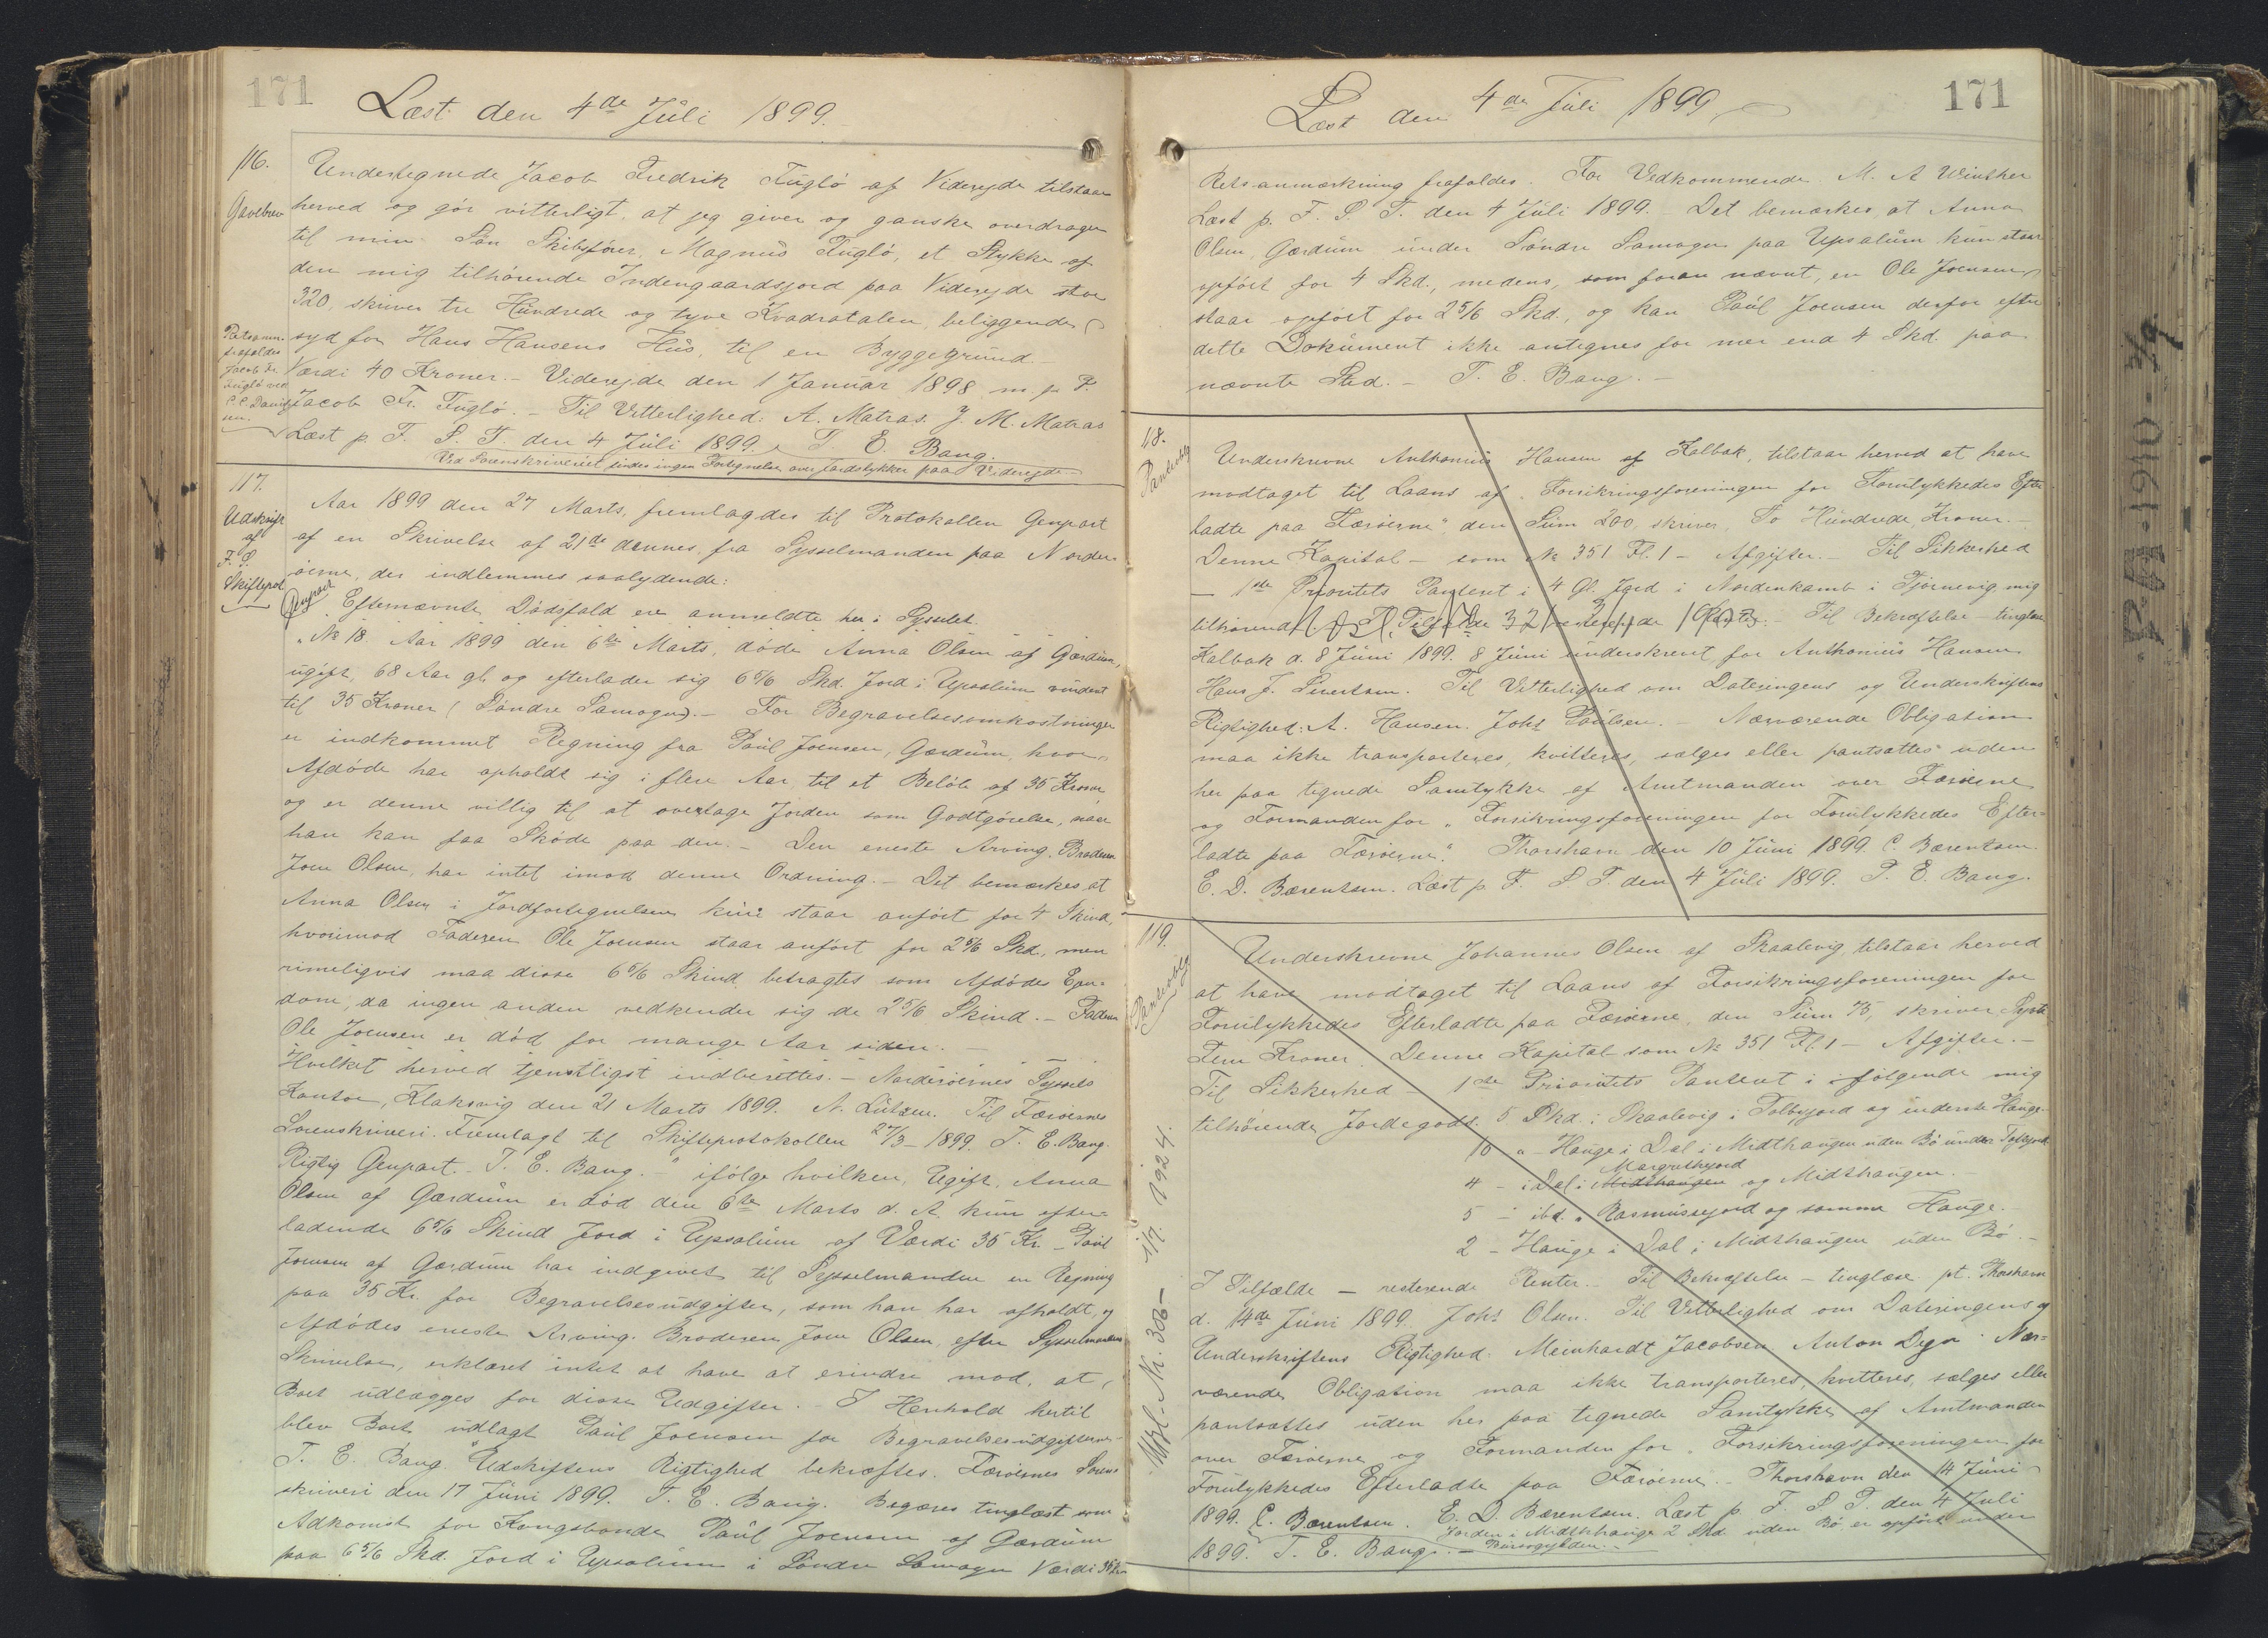 171
Læst den 4de Juli 1899.
116.
Gavebrev
Undertegnede Jacob Fredrik Fuglö af Viderejde tilstaar
herved og gör vitterligt, at jeg giver og ganske overdrager
til min Sön Skibsförer, Magnus Fuglö, et Stykke af
den mig tilhörende Indengaardsjord paa Viderejde stor
320, skriver tre Hundrede og tyve Kvadratalen, beliggende
syd for Hans Hansens Hus, til en Byggegrund
Værdi 40 Kroner. – Viderejde den 1 Januar 1898 m. p. P.
Jacob Fr. Fuglö. – Til Vitterlighed: A. Matras. J. M. Matras
Læst p. F. S. T. den 4 Juli 1899. T. E. Bang.
Ved Sorenskriveriet findes ingen Fortegnelse over Jordstykker paa Viderejde
Retsanm.
frafaldes
Jacob Fr.
Fuglö ved
117.
Udskrift
af
F. S.
Skifteprot
Genpart
Aar 1899 den 27 Marts, fremlagdes til Protokollen Genpart
af en Skrivelse af 21de dennes fra Sysselmanden paa Norder-
öerne, der indlemmes saalydende:
Efternævnte Dödsfald ere anmeldte her i Sysselet.
"No 18. Aar 1899 den 6te Marts, döde Anna Olsen af Gærdum,
ugift, 68 Aar gl. og efterlader sig 6 5/6 Skd. Jord i Upsalum vurderet
til 35 Kroner (Söndre Samogn). – For Begravelsesomkostninger
er indkommet Regning fra Paul Joensen, Gærdum, hvor
Afdöde har opholdt sig i flere Aar, til et Belöb af 35 Kroner
og er denne villig til at overtage Jorden som Godtgörelse, naar
han kan faa Sköde paa den. – Den eneste Arving, Broderen
Joen Olsen, har intet imod denne Ordning. – Det bemærkes, at
Anna Olsen i Jordfortegnelsen kun staar anfört for 4 Skind,
hvorimod Faderen Ole Joensen staar anfört for 2 5/6 Skd., men
rimeligvis maa disse 6 5/6 Skind betragtes som Afdödes Ejen-
dom, da ingen anden vedkender sig de 2 5/6 Skind. – Faderen
Ole Joensen er död for mange Aar siden. –
Hvilket herved tjenstligst indberettes. – Norderöernes Syssels
Kontor, Klaksvig den 21 Marts 1899. N. Lützen. Til Færöernes
Sorenskriveri. Fremlagt til Skifteprotokollen 27/3 – 1899. T. E. Bang.
Rigtig Genpart. T. E. Bang. –" ifölge hvilken, Ugift, Anna
Olsen af Gærdum er död den 6te Marts d. A. kun efter-
ladende 6 5/6 Skind Jord i Upsalum af Værdi 35 Kr. – Paul
Joensen af Gærdum har indgivet til Sysselmanden en Regning
paa 35 Kr. for Begravelsesudgifter, som han har afholdt, og
Afdödes eneste Arving, Broderen Joen Olsen, efter Sysselmandens
Skrivelse, erklæret intet at have at erindre mod, at
Boet udlægges for disse Udgifter. – I Henhold hertil
blev Boet udlagt Paul Joensen for Begravelsesudgifterne. –
T. E. Bang. Udskriftens Rigtighed bekræftes. Færöernes Soren-
skriveri den 17 Juni 1899. T. E. Bang. Begæres tinglæst som
Adkomst for Kongsbonde Paul Joensen af Gærdum
paa 6 5/6 Skd. Jord i Upsalum i Söndre Samogn Værdi 35 Kr.
171
Læst den 4de Juli 1899
Retsanmærkning frafaldes. For Vedkommende M. A Winther
Læst p. F. S. T. den 4 Juli 1899. Det bemærkes, at Anna
Olsen, Gærdum under Söndre Samogn paa Upsalum kun staar
opfört for 4 Skd., medens, som foran nævnt, er Ole Joensen
staar opfört for 2 5/6 Skd., og kan Paul Joensen derfor efter
dette Dokument ikke antegnes for mer end 4 Skd. paa
nævnte Sted. – T. E. Bang. –
118.
Panteoblg
Underskrevne Anthonius Hansen af Kalbak, tilstaar herved at have
modtaget til Laans af "Forsikringsforeningen for Forulykkedes Efter
ladte paa Færöerne" den Sum 200, skriver To Hundrede, Kroner. –
Denne Kapital – som No 351 Fl. 1 – Afgifter. – Til Sikkerhed
– 1ste Prioritets Panteret i 4 Gl. Jord i Nordenkamb i Tjörnevig, mig
tilhörende. I Tilfælde – resterende Renter. – Til Bekræftelse – tinglæse
Kalbak d. 8 Juni 1899. 8 Juni underskrevt for Anthonius Hansen
Hans J. Sivertsen. Til Vitterlighed om Dateringens og Underskriftens
Rigtighed: A. Hansen. Johs Poulsen. – Nærværende Obligation
maa ikke transporteres, kvitteres, sælges eller pantsættes uden
her paa tegnede Samtykke af Amtmanden over Færöerne
og Formanden for "Forsikringsforeningen for Forulykkedes Efter-
ladte paa Færöerne". Thorshavn den 10 Juni 1899. C. Bærentsen.
E. D. Bærentsen. Læst p. F. S T. den 4 Juli 1899. T. E. Bang.
119.
Panteoblg
Underskrevne Johannes Olsen af Skaalevig, tilstaar herved
at have modtaget til Laans af Forsikringsforeningen for
Forulykkedes Efterladte paa Færöerne, den Sum 75, skriver Systi
Fem Kroner. Denne Kapital som No 351 Fl. 1 – Afgifter. –
Til Sikkerhed – 1ste Prioritets Panteret i ifölgende mig
tilhörende Jordegods: 5 Skd. i Skaalevig i Tolbyjord og inderste Hauge
10 " – Hauge i Dal i Midthaugen uden Bö under
4 – i Dal i Midthaugen Margrethejord og Midthaugen. –
5 – ibd. " Rasmussejord og samme Hauge. –
2 – Hauge i Dal i Midthaugen uden Bö. –
I Tilfælde – resterende Renter. – Til Bekræftelse – tinglæse. pt. Thorshavn
d. 14de Juni 1899. Johs Olsen. Til Vitterlighed om Dateringens og
Underskriftens Rigtighed: Meinhardt Jacobsen Anton Dega. Nær-
værende Obligation maa ikke transporteres, kvitteres, sælges eller
pantsættes uden her paa tegnede Samtykke af Amtmanden
over Færöerne og Formanden for "Forsikringsforeningen for
Forulykkedes Efterladte paa Færöerne. Thorshavn den 14 Juni
1899. C. Bærentsen. E. D. Bærentsen. Læst p. F. S T. den 4 Juli
1899. T. E. Bang. – Jorden i Midthauge 2 Skd uden Bö er opfört under
Nr. 308 – 1/7 1924.